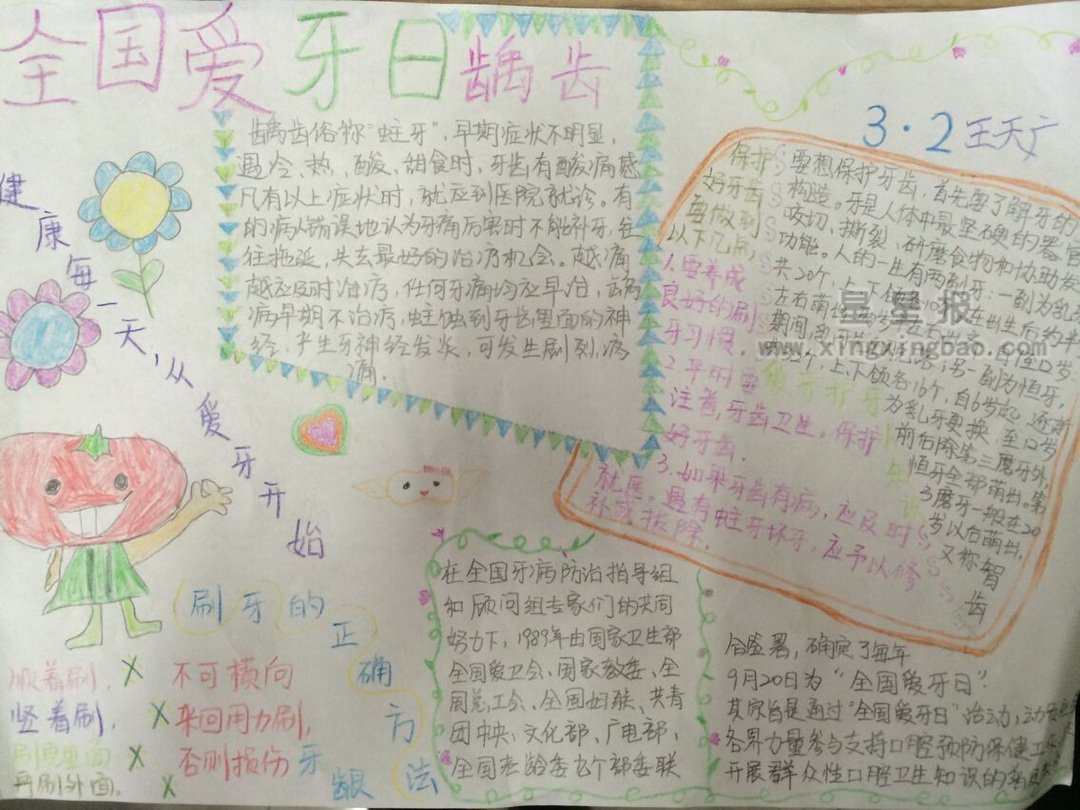 全国爱牙日龋齿
3·2王天广
健康每一天,从爱牙开始
龋齿俗称"蛀牙",早期症状不明显,
遇冷、热、酸、甜食时,牙齿有酸痛感
凡有以上症状时,就应到医院就诊。有
的病人错误地认为牙痛厉害时不能补牙,往
往拖延,失去最好的治疗机会。越痛
越应及时治疗,任何牙病均应早治,龋
病早期不治疗,蛀蚀到牙齿里面的神
经,产生牙神经发炎,可发生剧烈疼
痛。
保护
好牙齿
要做到
以下几点,
1.要养成
良好的刷
牙习惯.
2.平时要
注意,牙齿卫生,保护
好牙齿.
3.如果牙齿有病,应及时
就医。遇有蛀牙坏牙,应予以修
补或拔除.
要想保护牙齿,首先要了解牙的
构造。牙是人体中最坚硬的器官
咬切、撕裂、研磨食物和协助发
功能。人的一生有两副牙:一副为乳牙
共20个,上下颌各10个,在出生后约半
期间
恒牙,
上下颌各16个,自6岁起,逐渐
为乳牙更换,至12岁
前后除第三磨牙外,
恒牙全部萌出。第
3磨牙一般在20
岁以后萌出,
又称智
齿
爱牙护牙
知识
刷牙的正确方法
顺着刷,X
竖着刷,X
刷完里面X
再刷外面,X
不可横向
来回用力刷,
否则损伤牙龈
在全国牙病防治指导组
和顾问组专家们的共同
努力下,1989年由国家卫生部
全国爱卫会、国家教委、全
国总工会、全国妇联、共青
团中央、文化部、广电部、
全国老龄委九个部委联
合签署,确定了每年
9月20日为"全国爱牙日".
其宗旨是通过"全国爱牙日"活动,动员
各界力量参与支持口腔预防保健工
开展群众性口腔卫生知识的
星星报
www.xingxingbao.com